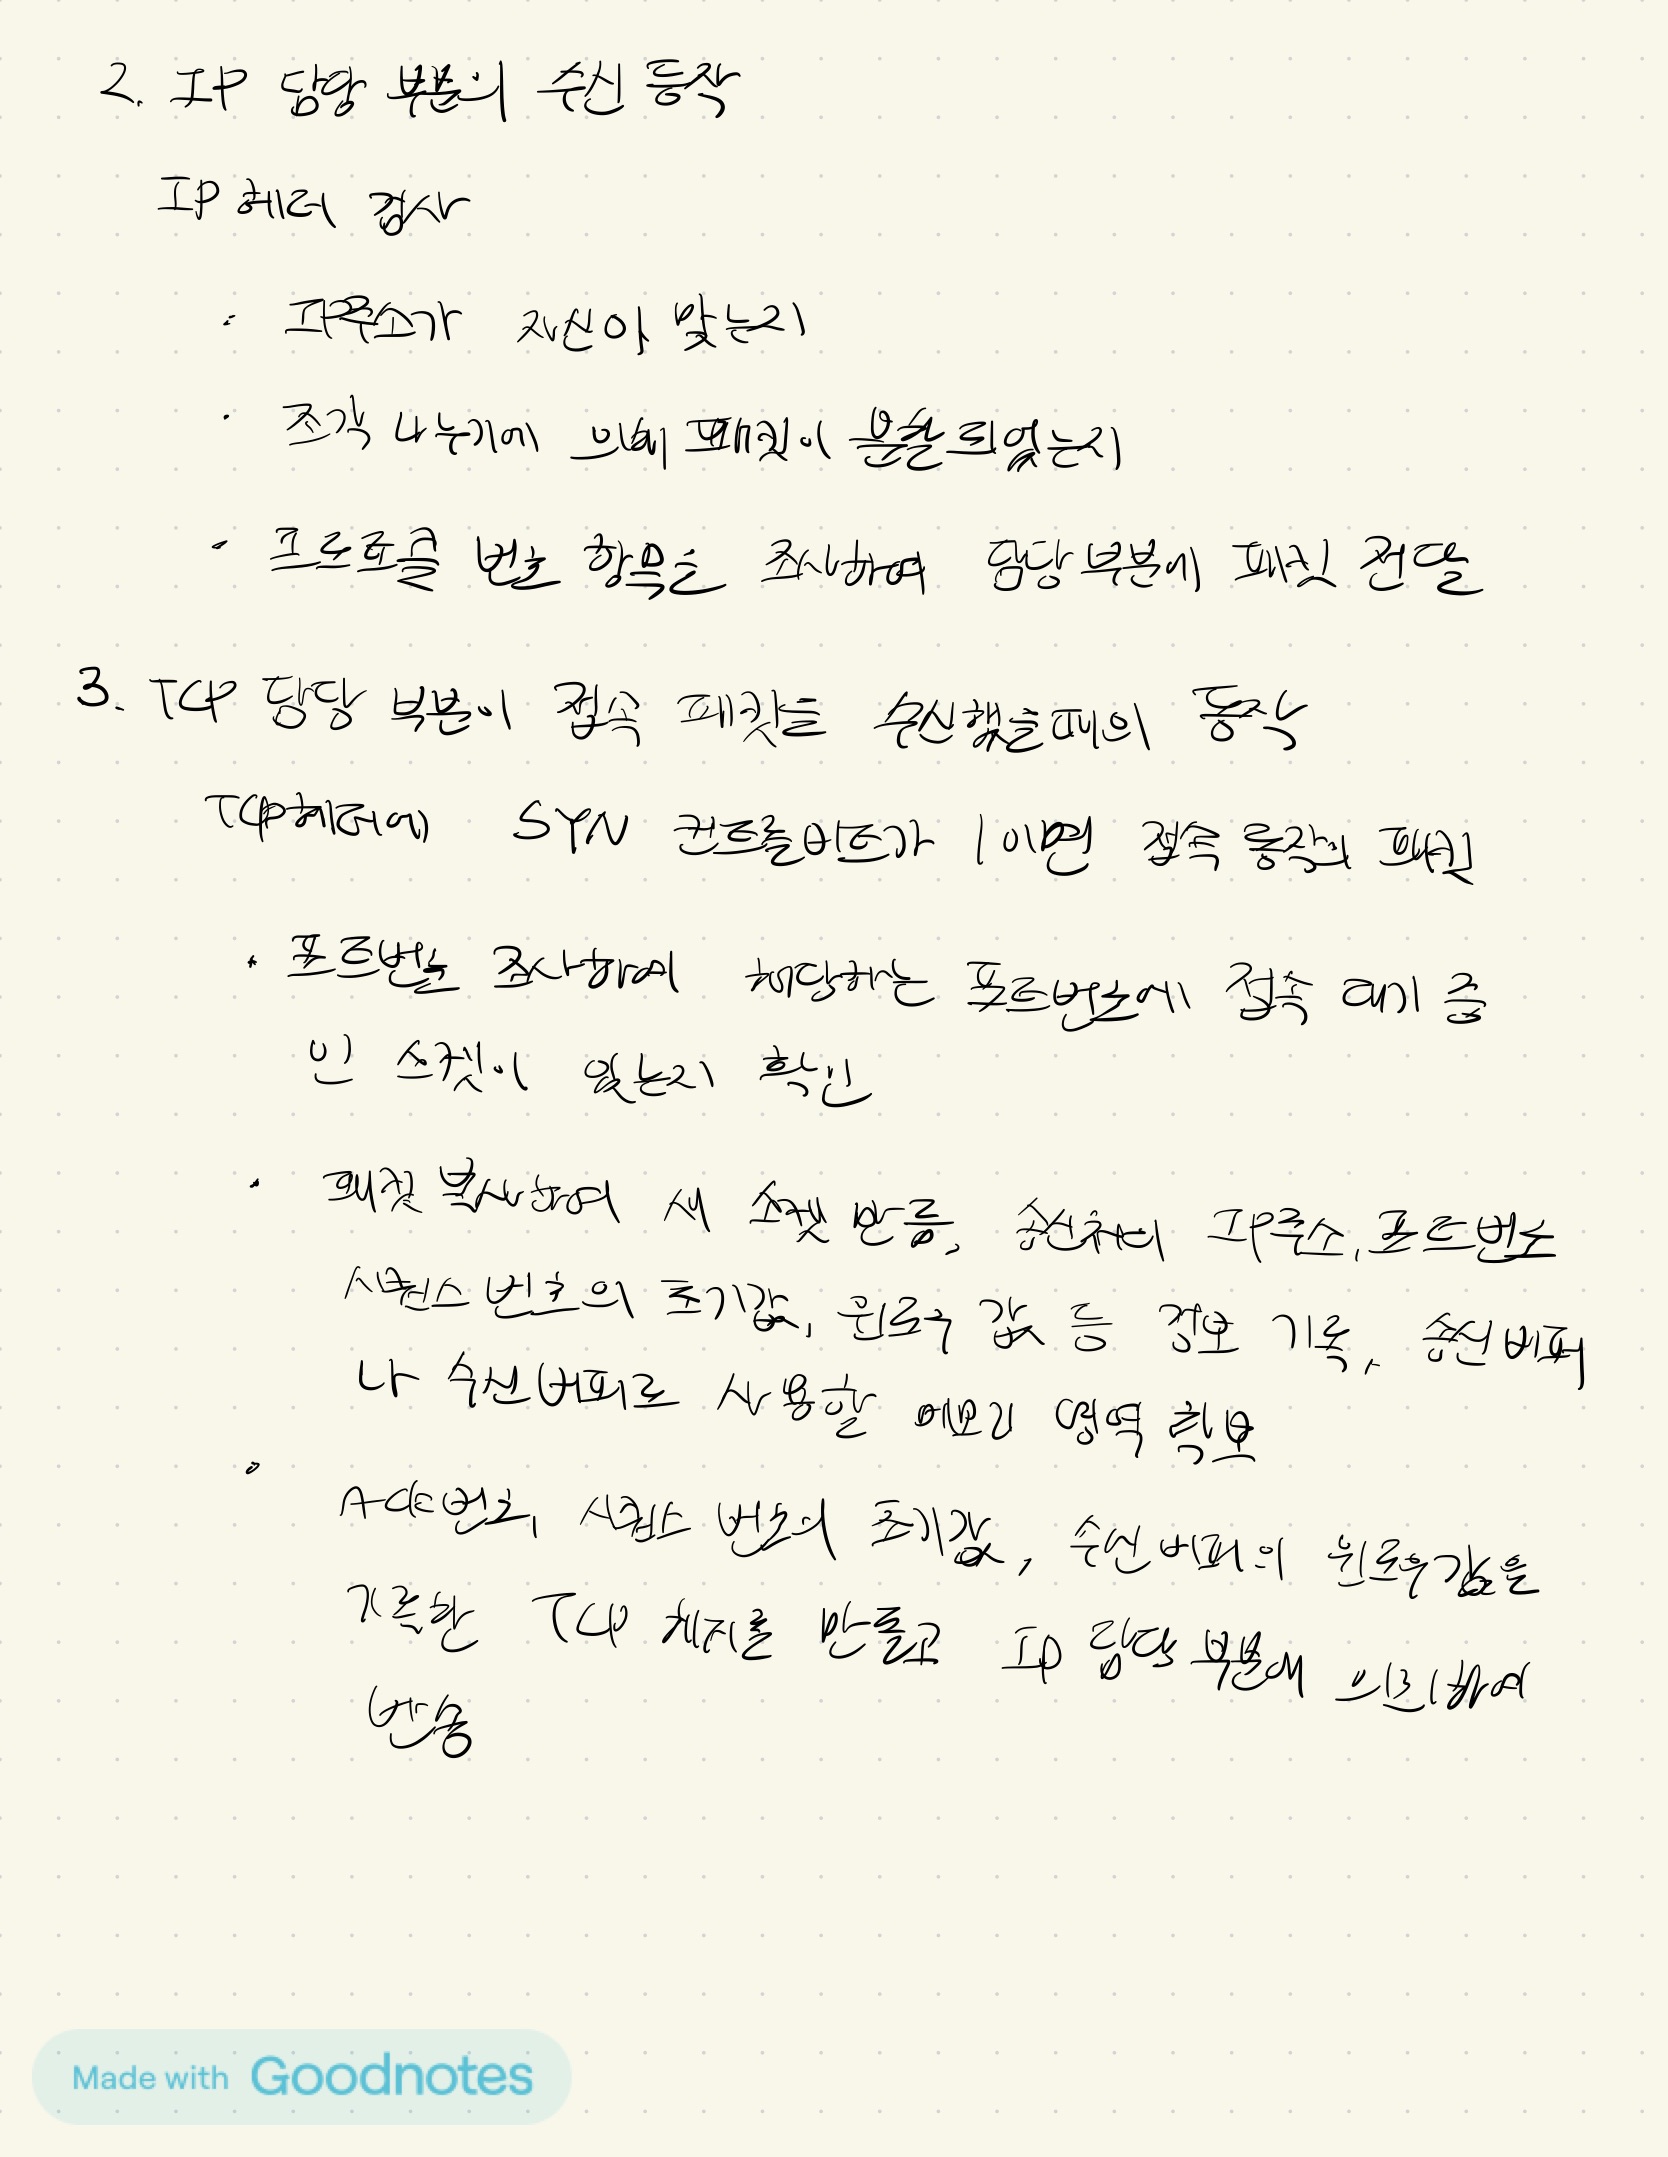 2. IP 담당 부분의 수신 동작
IP 헤더 검사
· IP주소가 자신이 맞는지
· 조각 나누기에 의해 패킷이 분할되었는지
· 프로토콜 번호 항목을 조사하여 담당부분에 패킷 전달
3. TCP 담당 부분이 접속 패킷을 수신했을때의 동작
TCP헤더에 SYN 컨트롤비트가 1이면 접속 동작의 패킷
· 포트번호 조사하여 해당하는 포트번호에 접속 대기 중
인 소켓이 있는지 확인
· 패킷 복사하여 새 소켓 만듦, 송신처의 IP주소, 포트번호
시퀀스 번호의 초기값, 윈도우 값 등 정보 기록, 송신버퍼
나 수신버퍼로 사용할 메모리 영역 확보
· ACK번호, 시퀀스 번호의 초기값, 수신버퍼의 윈도우값을
기록한 TCP 헤더를 만들고 IP 담당 부분에 의뢰하여
반송
Made with Goodnotes